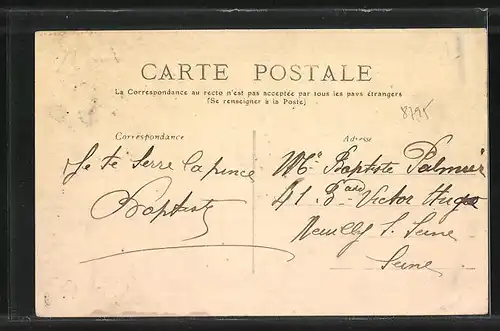 CARTE POSTALE
La Correspondance au recto n'est pas acceptée par tous les pays étrangers
(Se renseigner à la Poste)
8795
Correspondance
Je te serre la pince
Baptiste
Adresse
Mr Baptiste Palmier
41 Bard Victor Hugo
Neuilly s. Seine
Seine